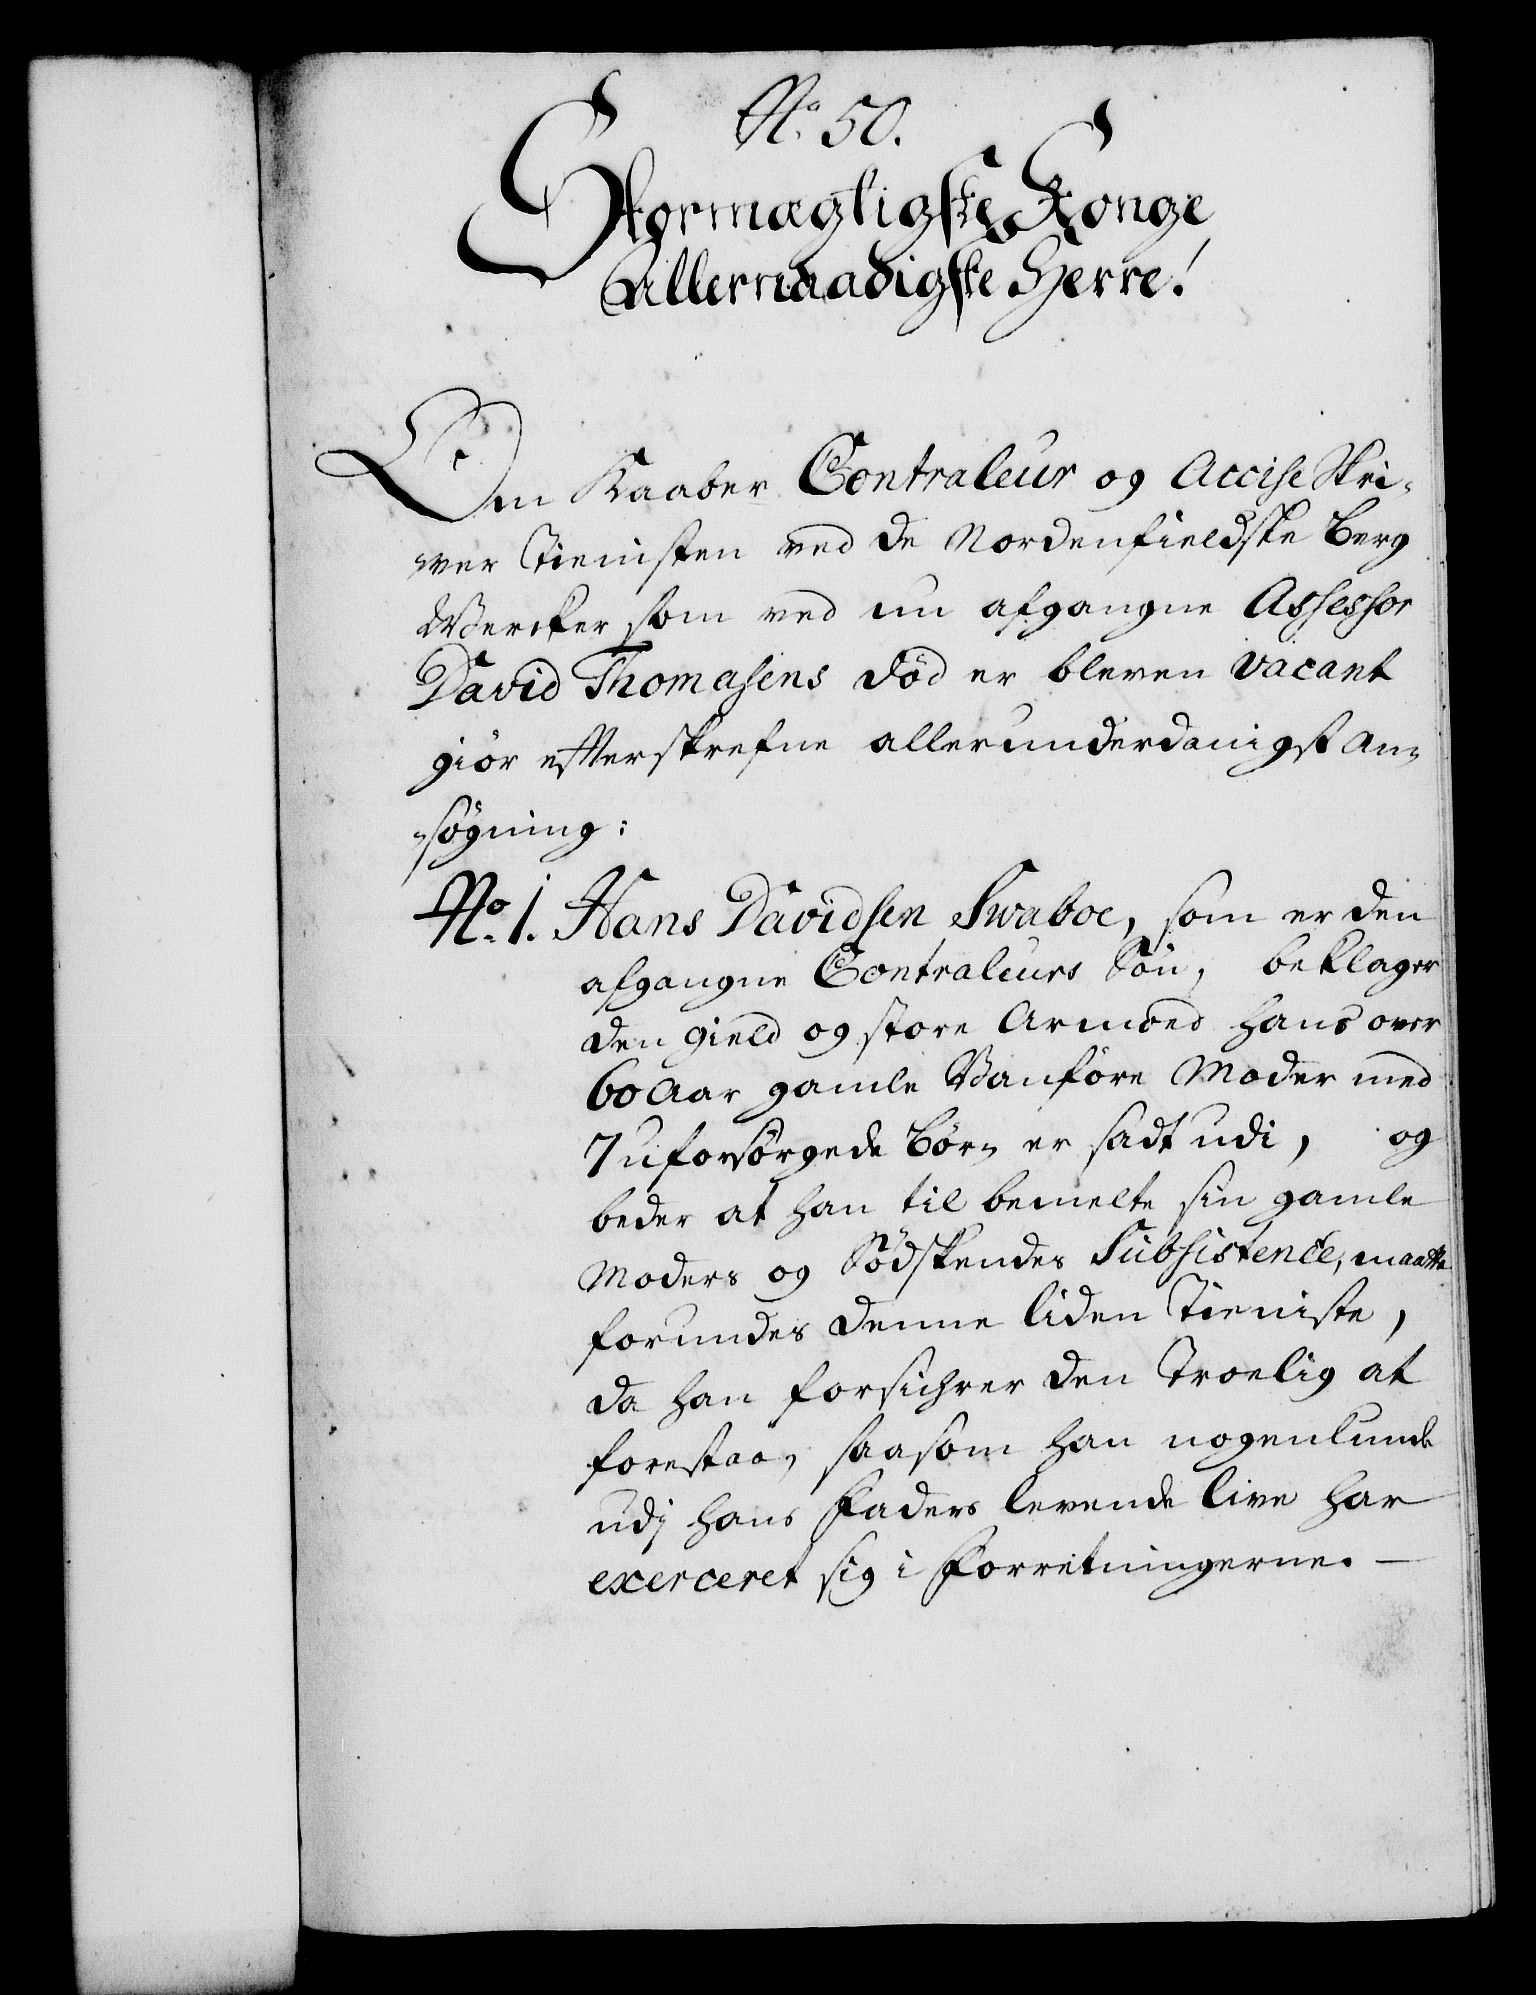 No. 50.
Stormægtigste Konge
Allernaadigste Herre!
Om Kaaber Contraleur og Accise Skri-
ver Tienisten ved de Nordenfieldske Berg
Wercker som ved nu afgangne Assessor
David Thomasens død er bleven vacant
giör efterskrefne allerunderdanigst An-
-søgning:
No. 1. Hans Davidsen Swaboe, som er den
afgangne Contraleurs Søn, beklager
den gield og store Armoed hans over
60 Aar gamle Wanføre Moder med
7 uforsørgede Børn er sadt udi, og
beder at han til bemelte sin gamle
Moders og Sødskendes Subsistence, maatte
forundes denne liden Tieniste,
da han forsichrer den Troelig at
forestaa, saasom han nogenlunde
udj hans Faders levende live har
exerceret sig i Forretningerne. —